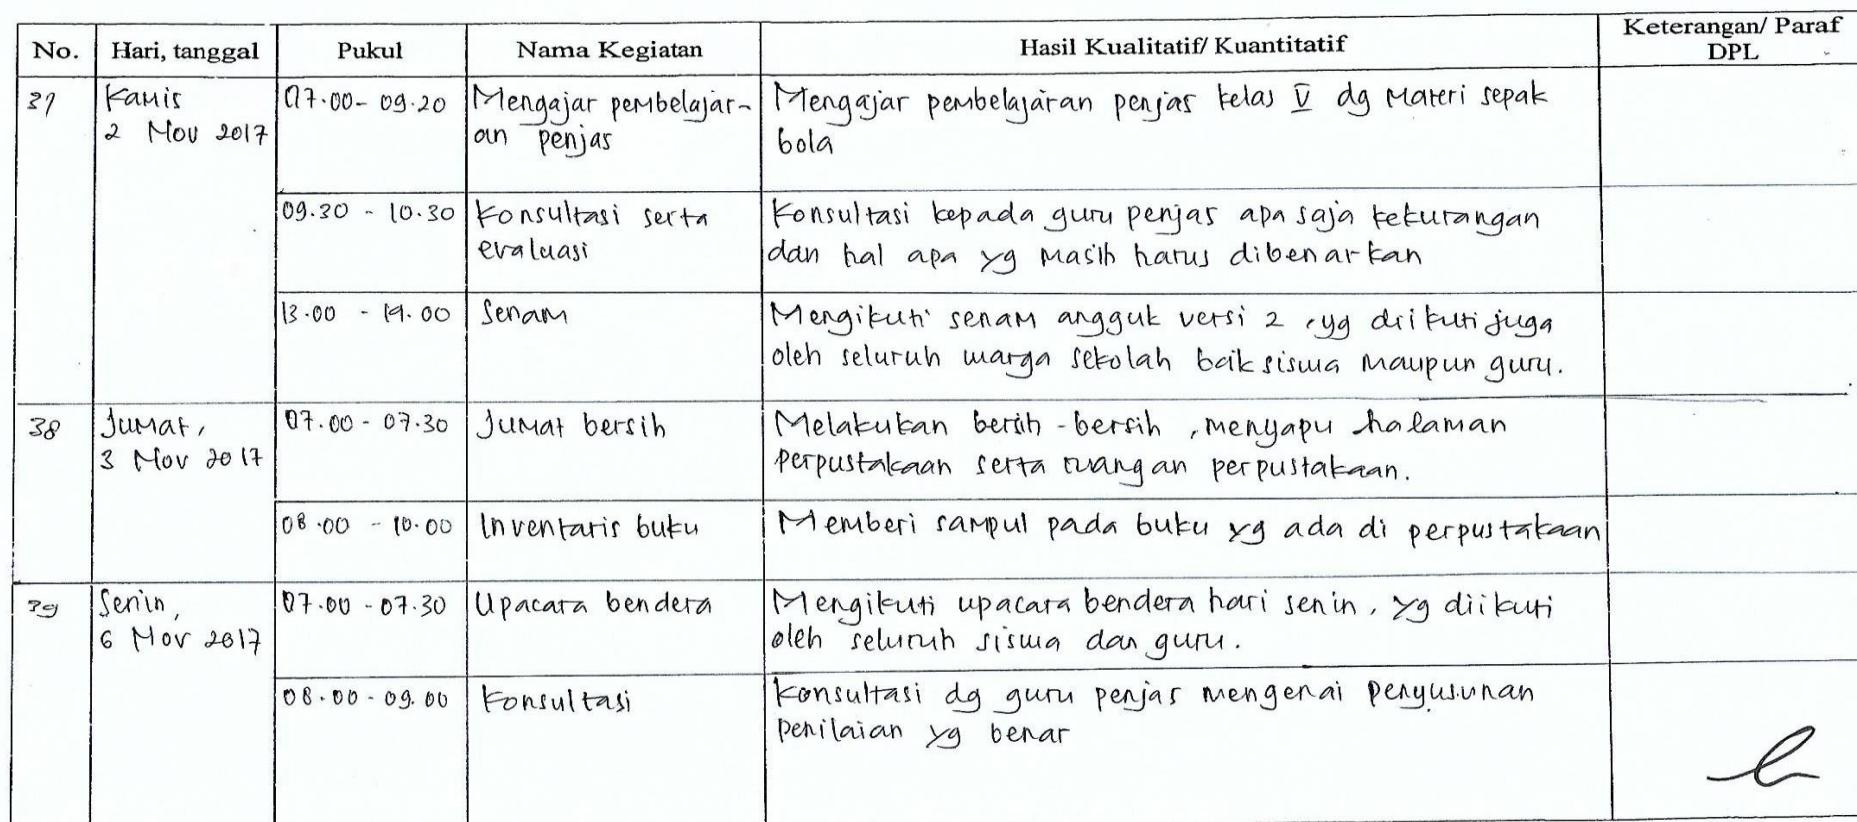 No. Hari, tanggal Pukul Nama Kegiatan Hasil Kualitatif/ Kuantitatif Keterangan/ Paraf
DPL
37 Kamis 07.00 - 09.20 Mengajar pembelajar- Mengajar pembelajaran penjas kelas V dg materi sepak
2 Nov 2017 an penjas bola
09.30 - 10.30 Konsultasi serta Konsultasi kepada guru penjas apa saja kekurangan
evaluasi dan hal apa yg masih harus dibenarkan
13.00 - 14.00 Senam Mengikuti senam angguk versi 2, yg diikuti juga
oleh seluruh warga sekolah baik siswa maupun guru.
38 Jumat, 07.00 - 07.30 Jumat bersih Melakukan bersih - bersih, menyapu halaman
3 Nov 2017 perpustakaan serta ruangan perpustakaan.
08.00 - 10.00 Inventaris buku Memberi sampul pada buku yg ada di perpustakaan
39 Senin, 07.00 - 07.30 Upacara bendera Mengikuti upacara bendera hari senin, yg diikuti
6 Nov 2017 oleh seluruh siswa dan guru.
08.00 - 09.00 Konsultasi Konsultasi dg guru penjas mengenai penyusunan
penilaian yg benar